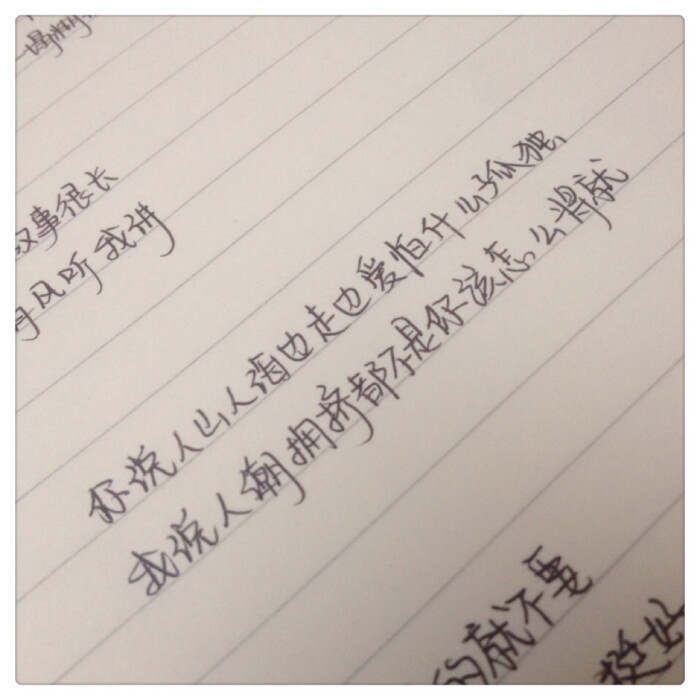 事很长
风听我讲
你说人山人海边走边爱怕什么孤独
我说人潮拥挤都不是你该怎么将就
的就不要
挺好